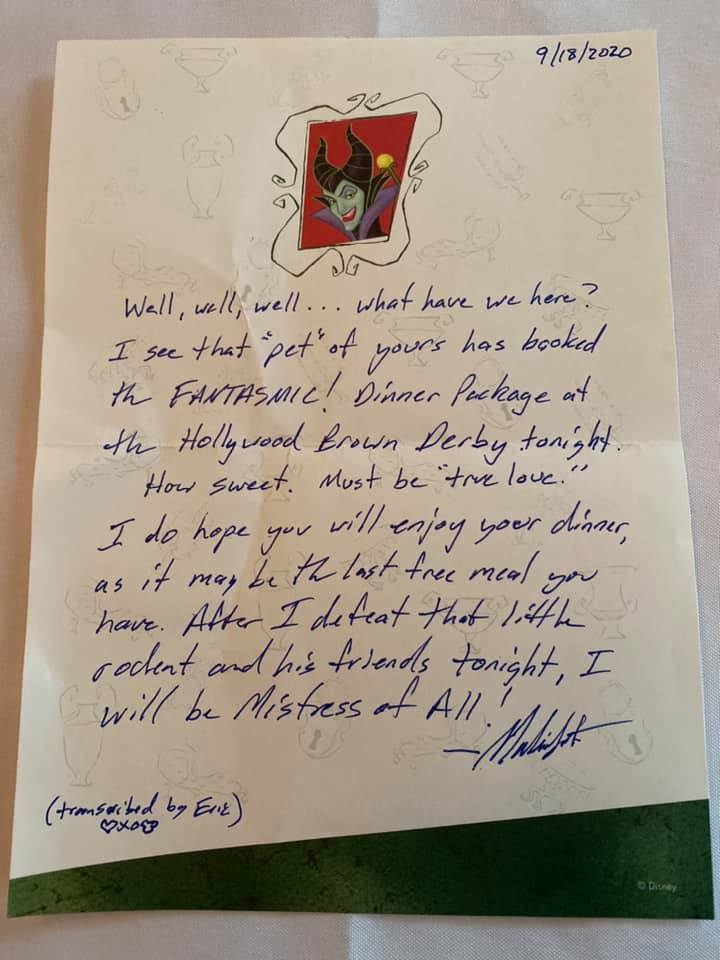 9/18/2020
Well, well, well... what have we here?
I see that "pet" of yours has booked
the FANTASMIC! Dinner Package at
the Hollywood Brown Derby tonight.
How sweet. Must be "true love."
I do hope you will enjoy your dinner,
as it may be the last free meal you
have. After I defeat that little
rodent and his friends tonight, I
will be Mistress of All!
—Maleficent
(transcribed by Eric)
♡XO♡
© Disney